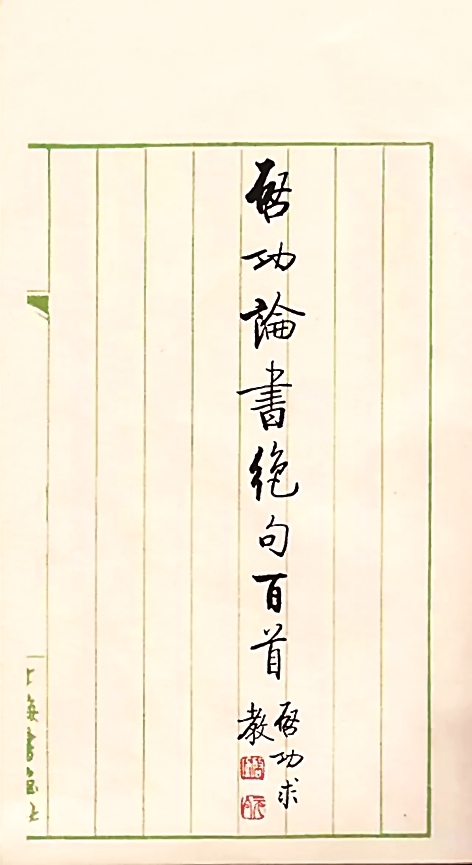 啓功論書絶句百首
啓功求
教
上海書画社